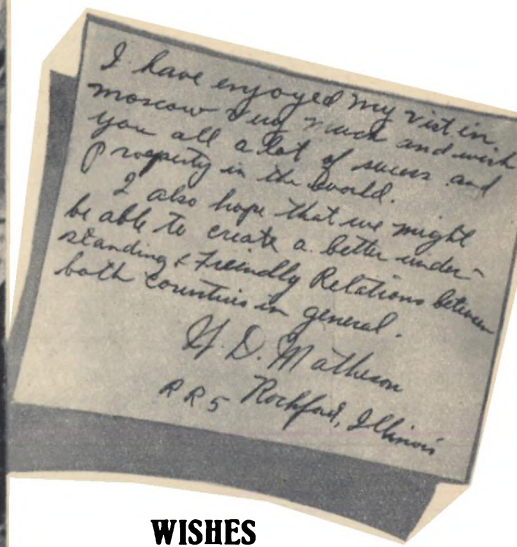 I have enjoyed my vist in
moscow very much and wish
you all a lot of sucess and
Prosperity in the world.
I also hope that we might
be able to create a better under-
standing & Freindly Relations between
both Countries in general.
D. Matheson
RR5 Rockford, Illinois
WISHES